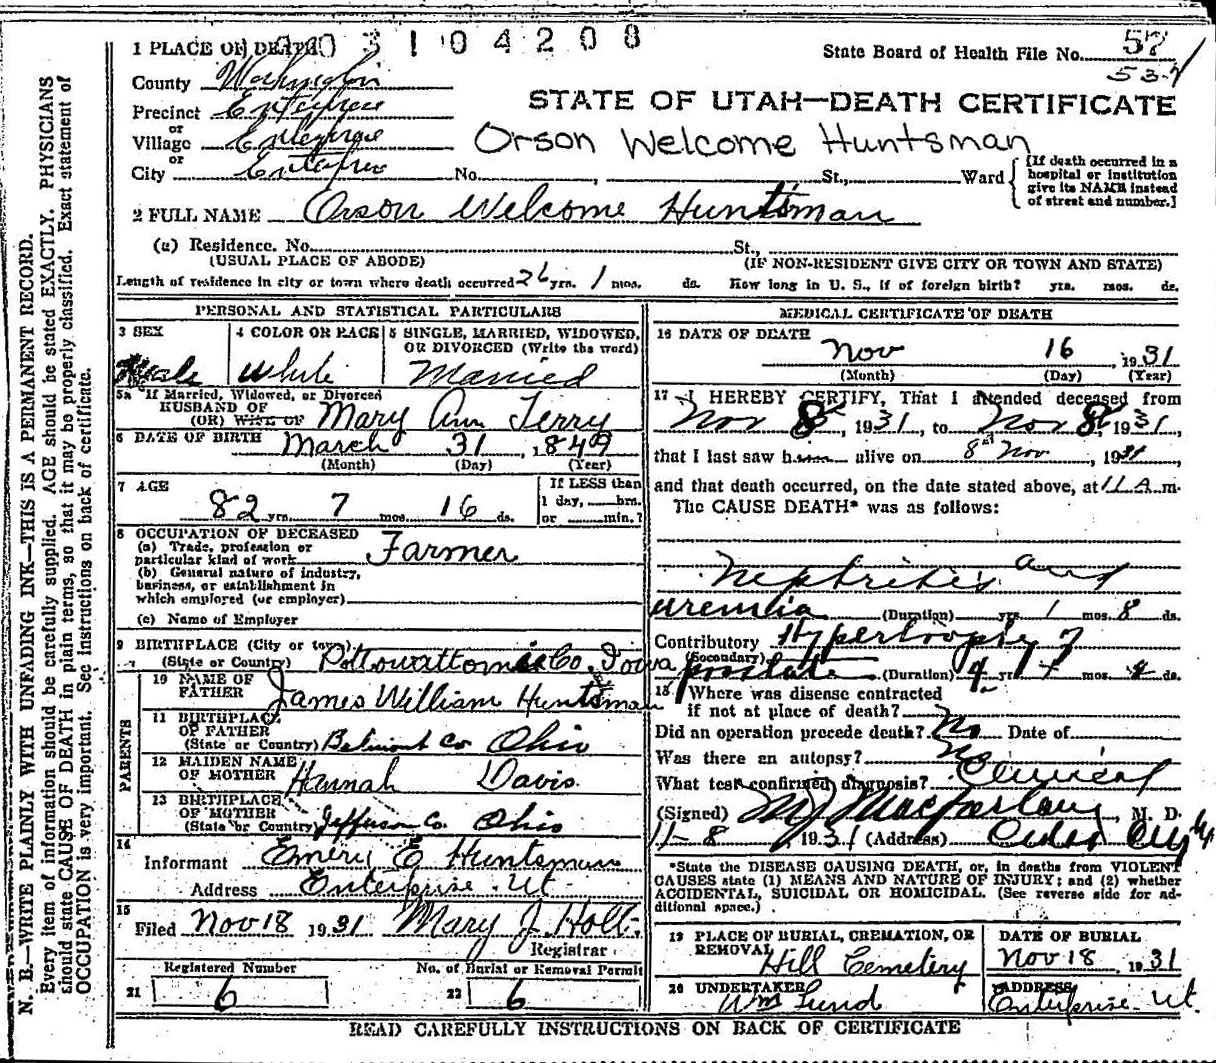 1 PLACE OF DEATH 0031 04208
State Board of Health File No. 57
County Washington
537
Precinct Enterprise
STATE OF UTAH—DEATH CERTIFICATE
or
Village Enterprise
Orson Welcome Huntsman
or
City Enterprise No. , St., Ward
[If death occurred in a hospital or institution give its NAME instead of street and number.]
2 FULL NAME Orson Welcome Huntsman
(a) Residence. No. St.,
(USUAL PLACE OF ABODE) (IF NON-RESIDENT GIVE CITY OR TOWN AND STATE)
Length of residence in city or town where death occurred 26 yrs. 1 mos. ds. How long in U. S., if of foreign birth? yrs. mos. ds.
PERSONAL AND STATISTICAL PARTICULARS
3 SEX
Male
4 COLOR OR RACE
White
5 SINGLE, MARRIED, WIDOWED,
OR DIVORCED (Write the word)
Married
5a If Married, Widowed, or Divorced
HUSBAND OF
(OR) WIFE OF Mary Ann Terry
6 DATE OF BIRTH March 31, 1849
(Month) (Day) (Year)
7 AGE
82 yrs. 7 mos. 16 ds.
If LESS than
1 day, hrs.
or min.?
8 OCCUPATION OF DECEASED
(a) Trade, profession or
particular kind of work Farmer
(b) General nature of industry,
business, or establishment in
which employed (or employer)
(c) Name of Employer
9 BIRTHPLACE (City or town)
(State or Country) Pottowattomie Co, Iowa
PARENTS
10 NAME OF
FATHER James William Huntsman
11 BIRTHPLACE
OF FATHER
(State or Country) Belmont Co Ohio
12 MAIDEN NAME
OF MOTHER Hannah Davis
13 BIRTHPLACE
OF MOTHER
(State or Country) Jefferson Co. Ohio
14
Informant Emery E Huntsman
Address Enterprise Ut
15
Filed Nov 18 1931 Mary J. Holt
Registrar
Registered Number
21 6
No. of Burial or Removal Permit
22 6
MEDICAL CERTIFICATE OF DEATH
16 DATE OF DEATH
Nov 16, 1931
(Month) (Day) (Year)
17 I HEREBY CERTIFY, That I attended deceased from
Nov 8, 1931, to Nov 8, 1931,
that I last saw h alive on 8th Nov, 1931
and that death occurred, on the date stated above, at 11 A.m.
The CAUSE DEATH* was as follows:
Nephritis and
uremia (Duration) yrs 1 mos. 8 ds.
Contributory Hypertrophy of
(Secondary)
prostate (Duration) yrs mos. ds.
18 Where was disease contracted
if not at place of death?
Did an operation precede death? No Date of
Was there an autopsy? No
What test confirmed diagnosis? Clinical
(Signed) M J Macfarlane, M. D.
11-8, 1931 (Address) Cedar City
*State the DISEASE CAUSING DEATH, or, in deaths from VIOLENT
CAUSES state (1) MEANS AND NATURE OF INJURY; and (2) whether
ACCIDENTAL, SUICIDAL OR HOMICIDAL. (See reverse side for ad-
ditional space.)
19 PLACE OF BURIAL, CREMATION, OR
REMOVAL Hill Cemetery
DATE OF BURIAL
Nov 18, 1931
20 UNDERTAKER
Wm Lund
ADDRESS
Enterprise Ut.
READ CAREFULLY INSTRUCTIONS ON BACK OF CERTIFICATE
N. B.—WRITE PLAINLY WITH UNFADING INK—THIS IS A PERMANENT RECORD.
Every item of information should be carefully supplied. AGE should be stated EXACTLY. PHYSICIANS
should state CAUSE OF DEATH in plain terms, so that it may be properly classified. Exact statement of
OCCUPATION is very important. See instructions on back of certificate.